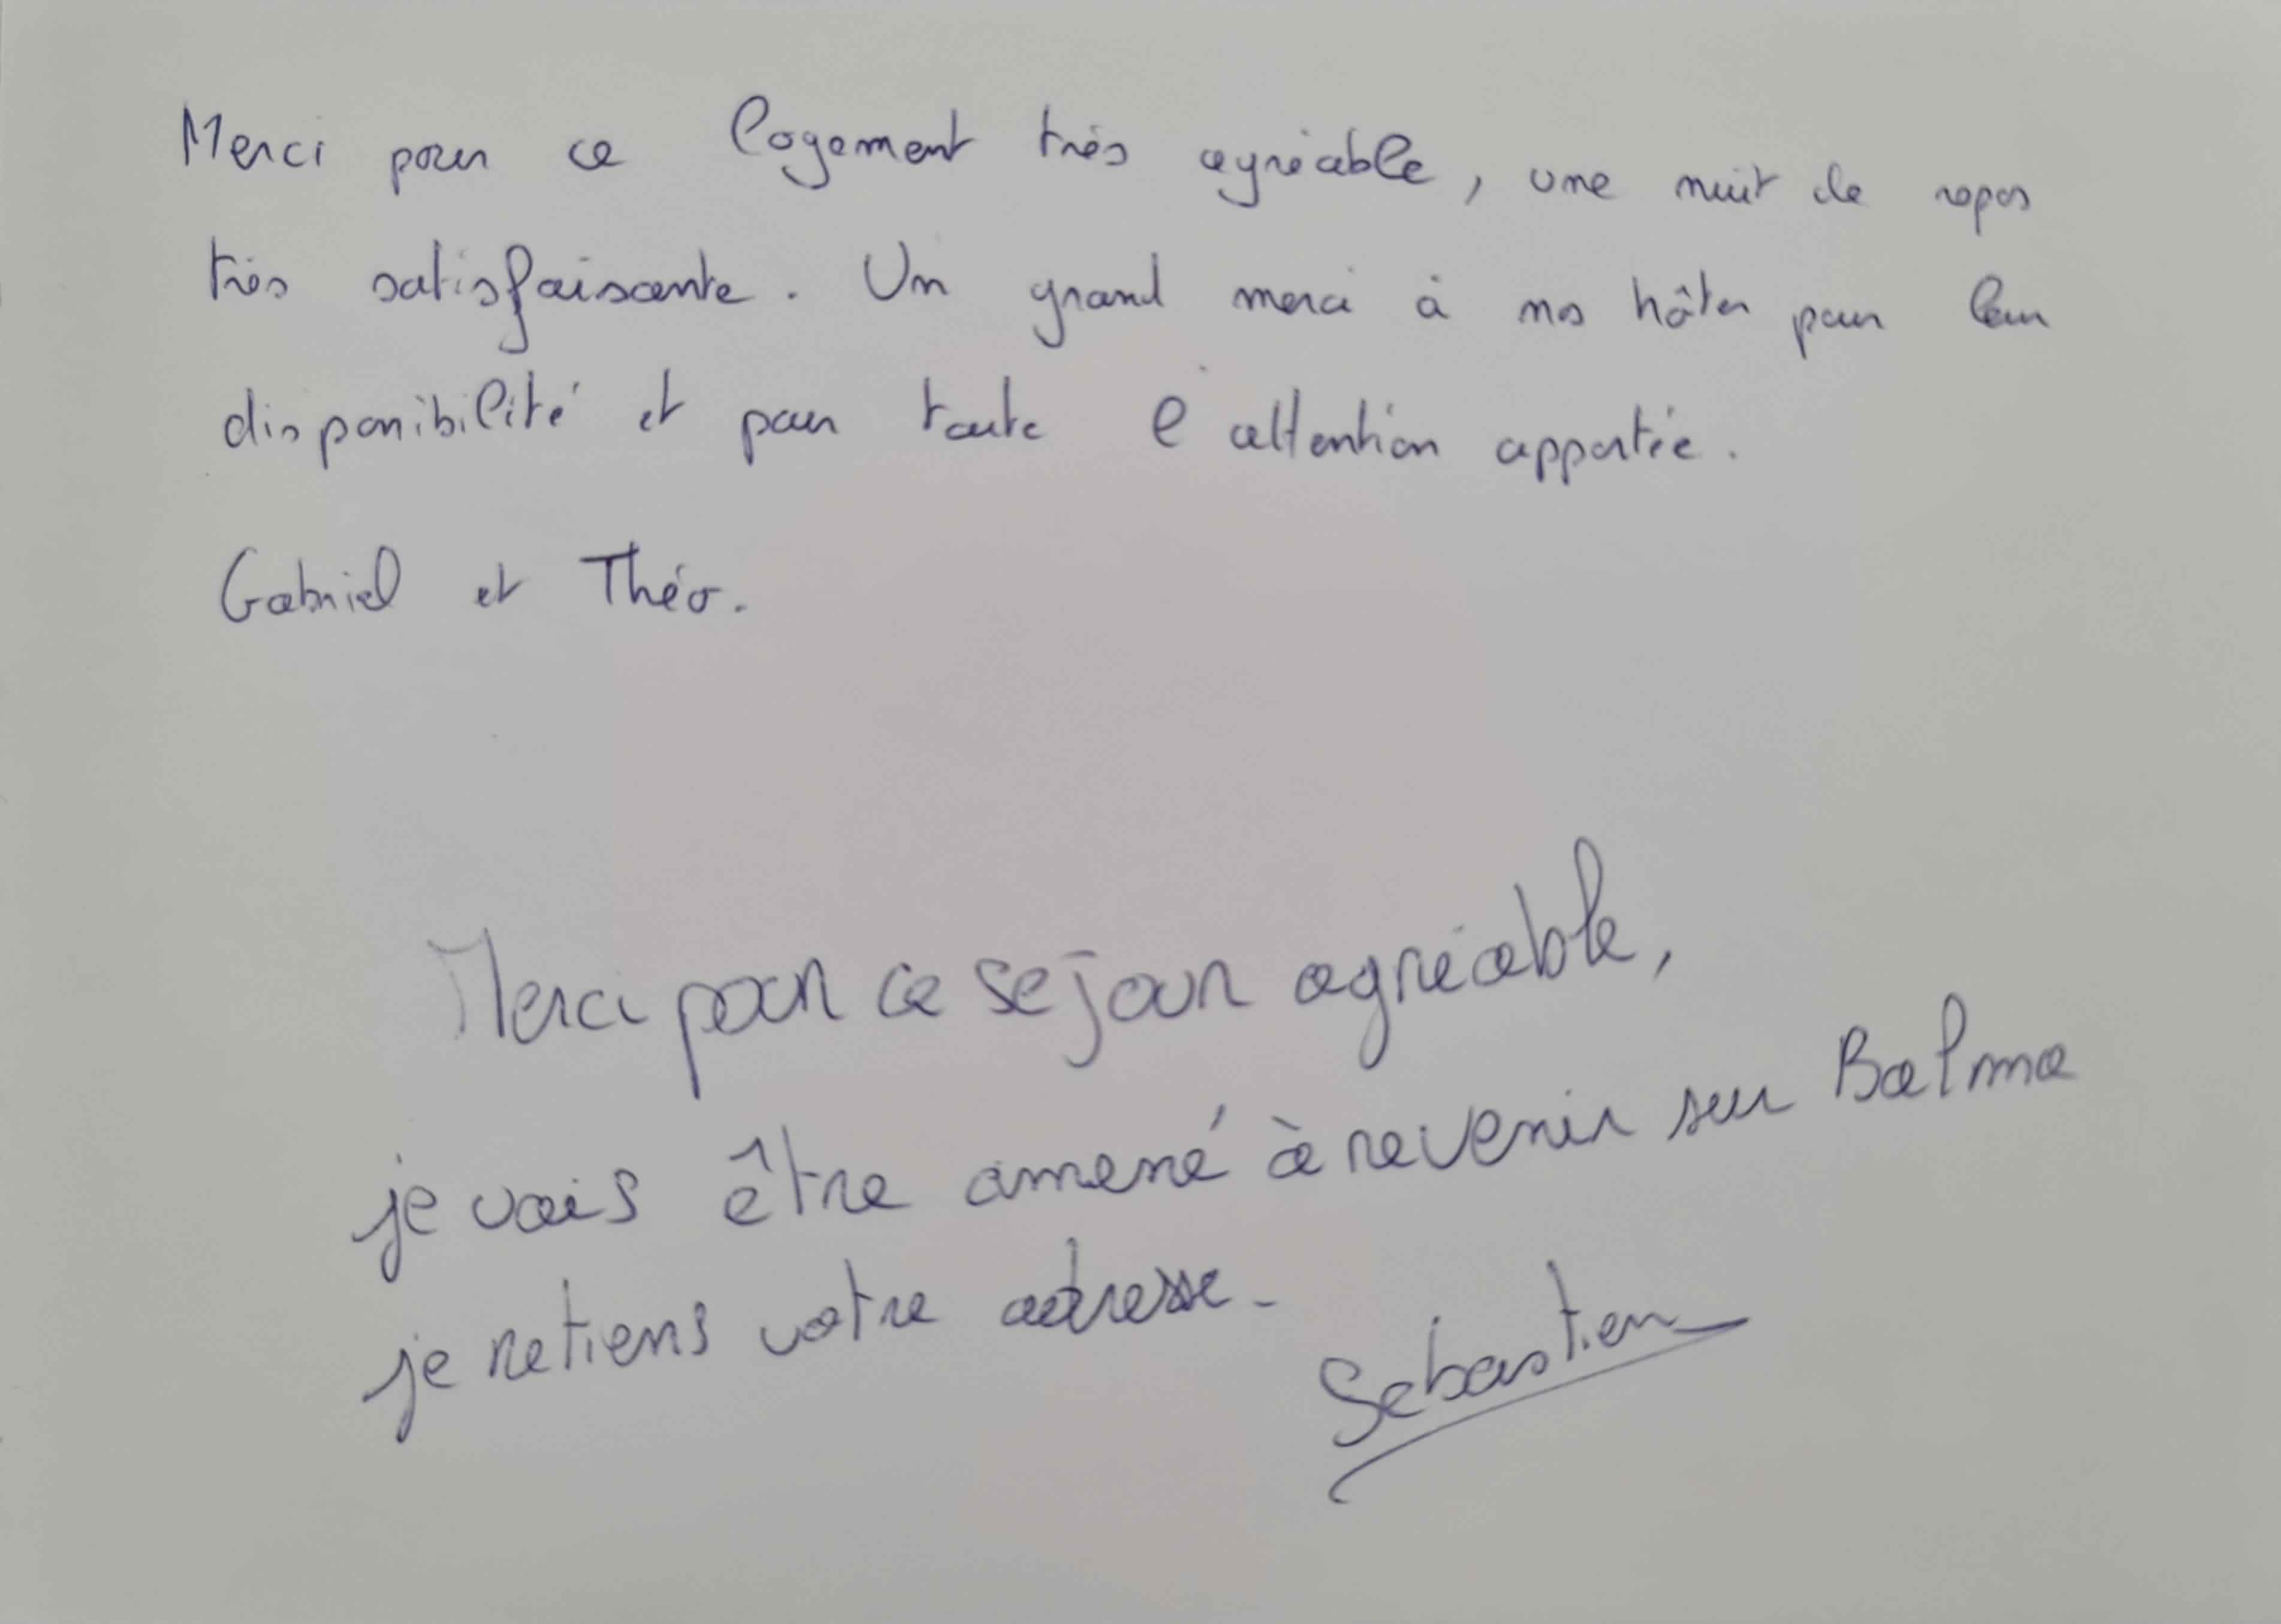 Merci pour ce logement très agréable, une nuit de repos
très satisfaisante. Un grand merci à nos hôtes pour leur
disponibilité et pour toute l'attention apportée.
Gabriel et Théo.
Merci pour ce sejour agréable,
je vais être amené à revenir sur Balma
je retiens votre adresse.
Sebastien